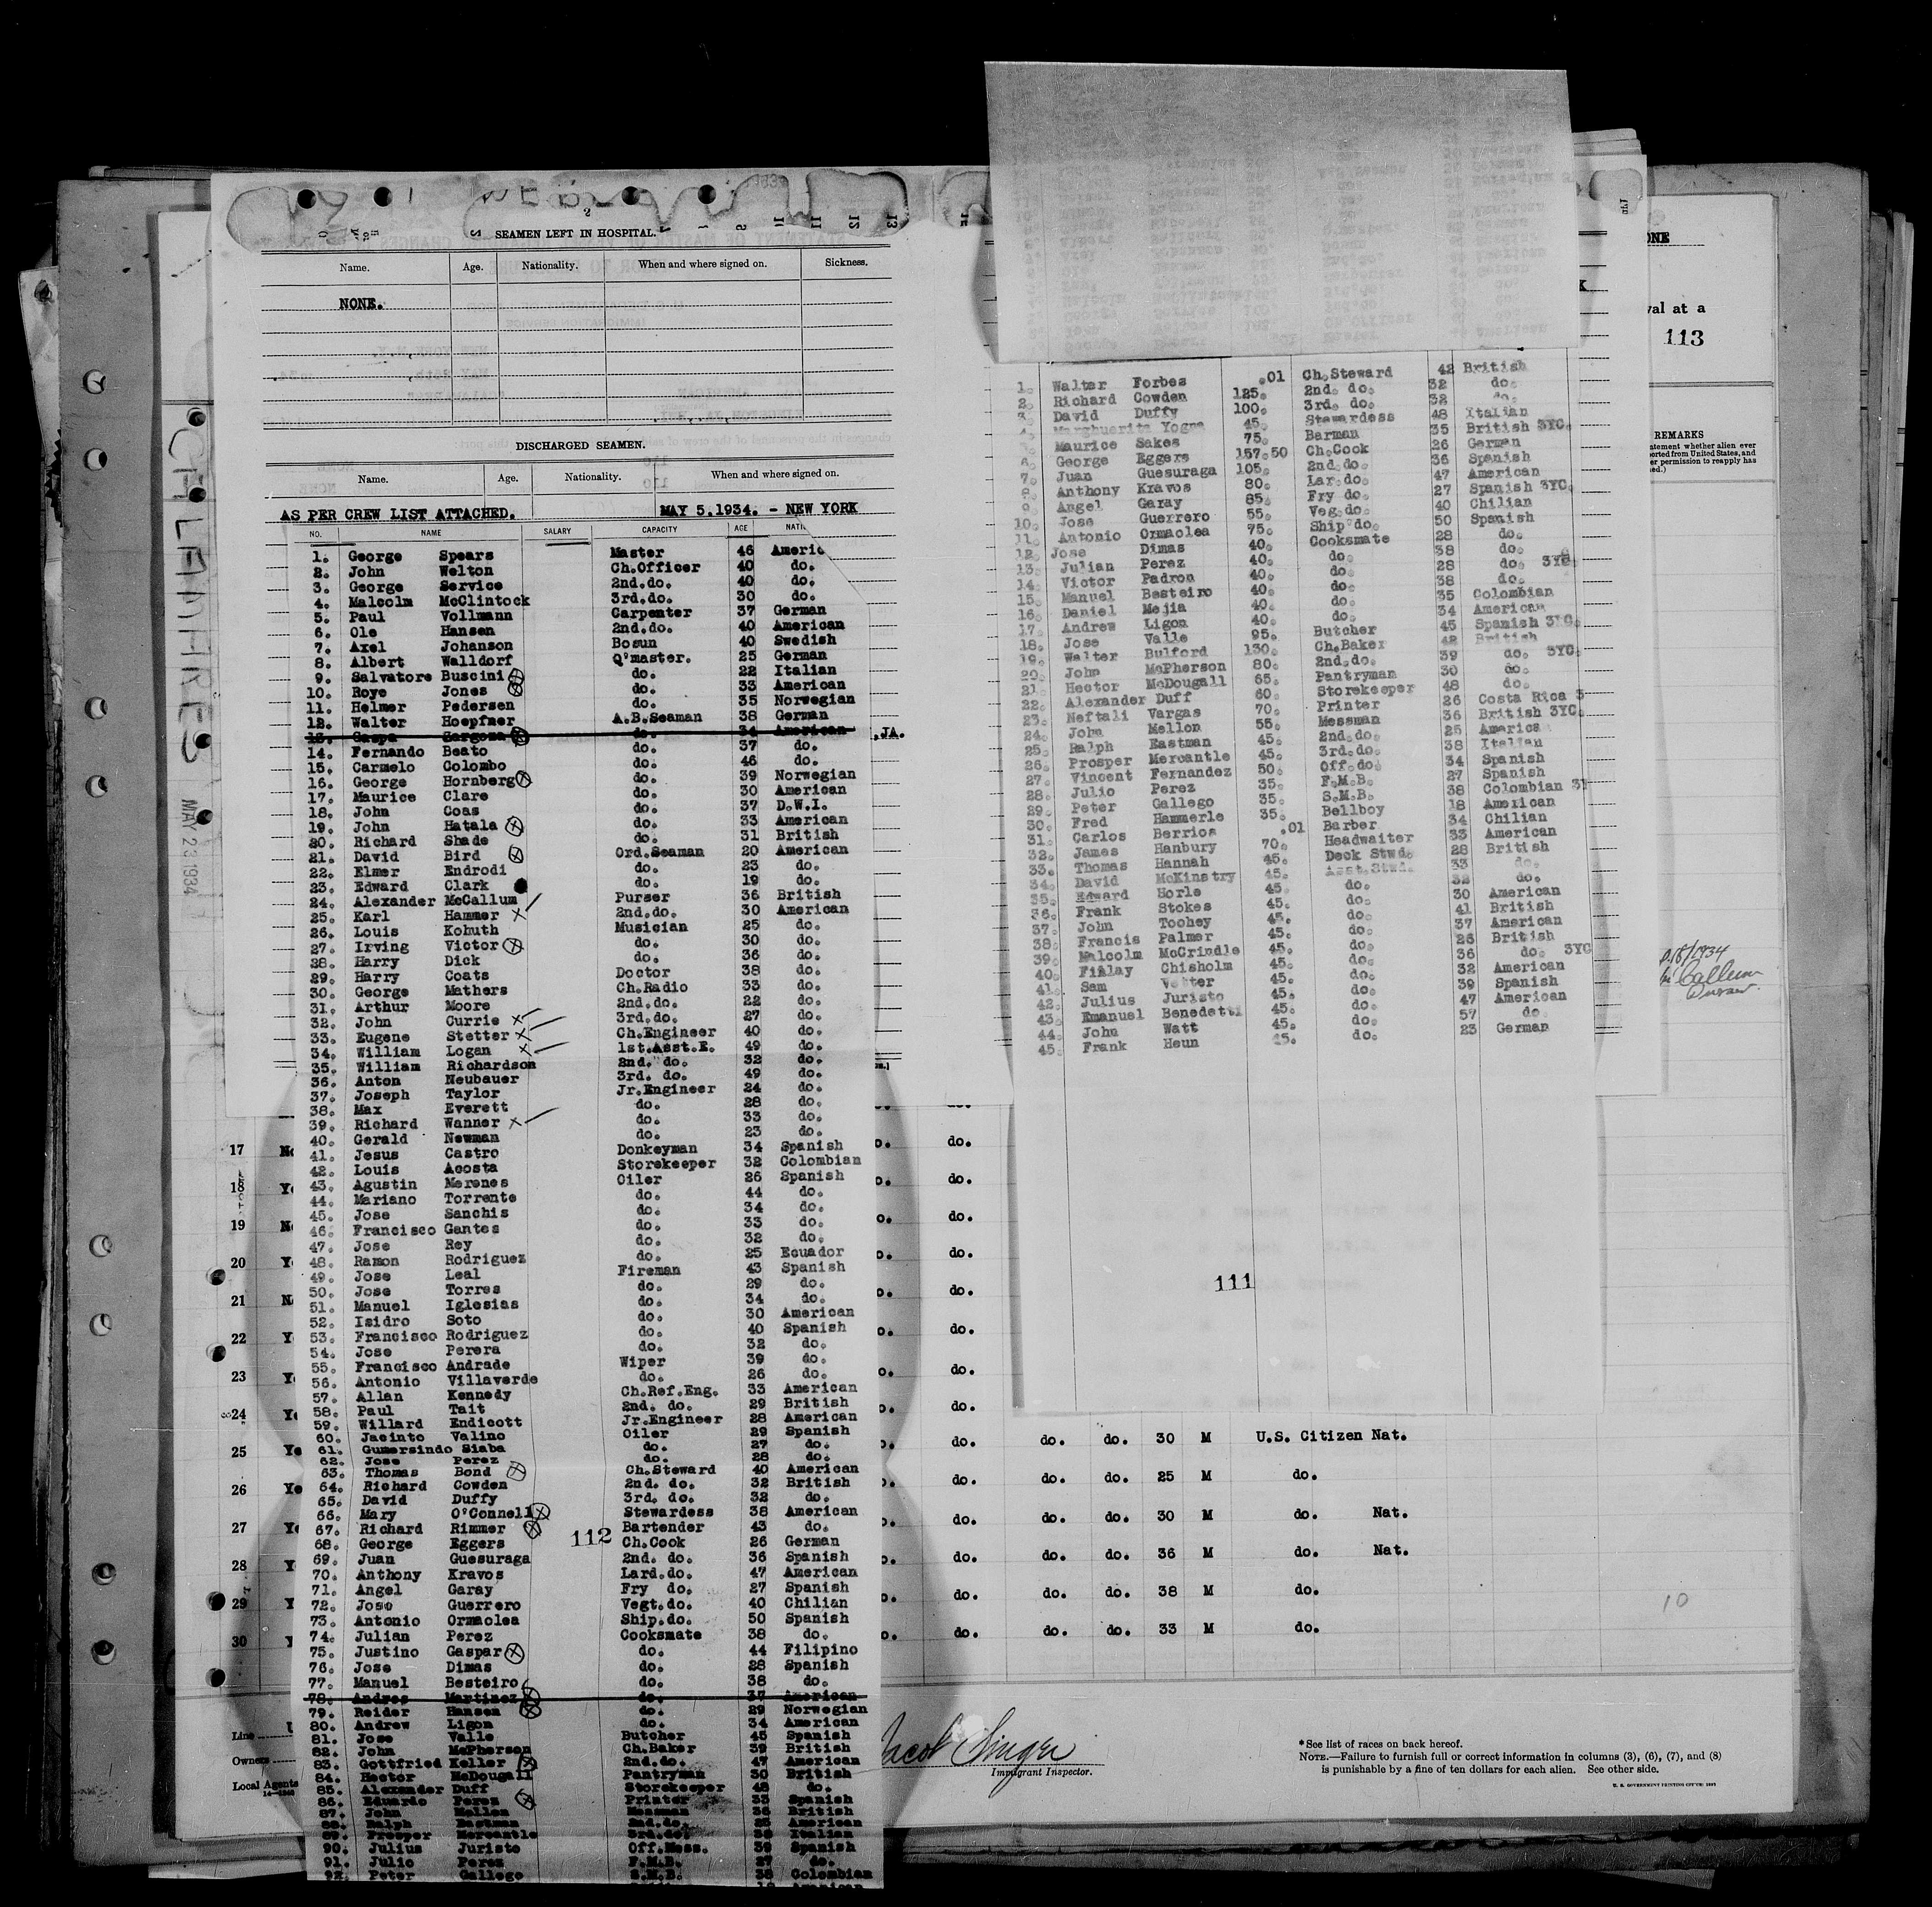 SEAMEN LEFT IN HOSPITAL.
Name. Age. Nationality. When and where signed on. Sickness.
NONE.
DISCHARGED SEAMEN.
Name. Age. Nationality. When and where signed on.
AS PER CREW LIST ATTACHED. MAY 5.1934. - NEW YORK
NO. NAME SALARY CAPACITY AGE
1. George Spears Master 46 Americ
2. John Welton Ch.Officer 40 do.
3. George Service 2nd.do. 40 do.
4. Malcolm McClintock 3rd.do. 30 do.
5. Paul Vollmann Carpenter 37 German
6. Ole Hansen 2nd.do. 40 American
7. Axel Johanson Bosun 40 Swedish
8. Albert Walldorf Q'master. 25 German
9. Salvatore Buscini do. 22 Italian
10. Roye Jones do. 33 American
11. Helmer Pedersen do. 35 Norwegian
12. Walter Hoepfner A.B.Seaman 38 German
13. do. 34 American ,JA.
14. Fernando Beato do. 37 do.
15. Carmelo Colombo do. 46 do.
16. George Hornberg do. 39 Norwegian
17. Maurice Clare do. 30 American
18. John Coas do. 37 D.W.I.
19. John Hatala do. 33 American
20. Richard Shade do. 31 British
21. David Bird Ord.Seaman 20 American
22. Elmer Endrodi do. 23 do.
23. Edward Clark do. 19 do.
24. Alexander McCallum Purser 36 British
25. Karl Hammer 2nd.do. 30 American
26. Louis Kohuth Musician 25 do.
27. Irving Victor do. 30 do.
28. Harry Dick do. 36 do.
29. Harry Coats Doctor 38 do.
30. George Mathers Ch.Radio 33 do.
31. Arthur Moore 2nd.do. 22 do.
32. John Currie 3rd.do. 27 do.
33. Eugene Stetter Ch.Engineer 40 do.
34. William Logan 1st.Asst.E. 49 do.
35. William Richardson 2nd. do. 32 do.
36. Anton Neubauer 3rd. do. 49 do.
37. Joseph Taylor Jr.Engineer 24 do.
38. Max Everett do. 28 do.
39. Richard Wanner do. 33 do.
40. Gerald Newman do. 23 do.
41. Jesus Castro Donkeyman 34 Spanish
42. Louis Acosta Storekeeper 32 Colombian
43. Agustin Merenes Oiler 26 Spanish
44. Mariano Torrente do. 44 do.
45. Jose Sanchis do. 34 do.
46. Francisco Gantes do. 33 do.
47. Jose Rey do. 32 do.
48. Ramon Rodriguez do. 25 Ecuador
49. Jose Leal Fireman 43 Spanish
50. Jose Torres do. 29 do.
51. Manuel Iglesias do. 34 do.
52. Isidro Soto do. 30 American
53. Francisco Rodriguez do. 40 Spanish
54. Jose Perera do. 32 do.
55. Francisco Andrade Wiper 39 do.
56. Antonio Villaverde do. 26 do.
57. Allan Kennedy Ch.Ref.Eng. 33 American
58. Paul Tait 2nd. do. 29 British
59. Willard Endicott Jr.Engineer 28 American
60. Jacinto Valino Oiler 29 Spanish
61. Gumersindo Siaba do. 27 do.
62. Jose Perez do. 28 do.
63. Thomas Bond Ch.Steward 40 American
64. Richard Cowden 2nd. do. 32 British
65. David Duffy 3rd. do. 32 do.
66. Mary O'Connell Stewardess 38 American
67. Richard Rimmer Bartender 43 do.
68. George Eggers Ch.Cook 26 German
69. Juan Guesuraga 2nd. do. 36 Spanish
70. Anthony Kravos Lard.do. 47 American
71. Angel Garay Fry do. 27 Spanish
72. Jose Guerrero Vegt.do. 40 Chilian
73. Antonio Ormaolea Ship.do. 50 Spanish
74. Julian Perez Cooksmate 38 do.
75. Justino Gaspar do. 44 Filipino
76. Jose Dimas do. 28 Spanish
77. Manuel Besteiro do. 38 do.
78. Andres Martinez do. 37 American
79. Reider Hansen do. 29 Norwegian
80. Andrew Ligon do. 34 American
81. Jose Valle Butcher 45 Spanish
82. John McPherson Ch.Baker 39 British
83. Gottfried Keller 2nd.do. 47 American
84. Hector McDougall Pantryman 30 British
85. Alexander Duff Storekeeper 48 do.
86. Eduardo Perez Printer 33 Spanish
87. John Mellon Messman 36 British
88. Ralph Eastman 2nd.do. 25 American
89. Prosper Mercantle 3rd.do. 38 Italian
90. Julius Juristo Off.Mess. 39 Spanish
91. Julio Perez F.M.B. 27 do.
92. Peter Gallego S.M.B. 38 Colombian
112
1. Walter Forbes .01 Ch.Steward 42 British
2. Richard Cowden 125. 2nd. do. 32 do.
3. David Duffy 100. 3rd. do. 32 do.
4. Marghuerita Yogna 45. Stewardess 48 Italian
5. Maurice Sakes 75. Barman 35 British 3YC.
6. George Eggers 157.50 Ch.Cook 26 German
7. Juan Guesuraga 105. 2nd.do. 36 Spanish
8. Anthony Kravos 80. Lar.do. 47 American
9. Angel Garay 85. Fry do. 27 Spanish 3YC.
10. Jose Guerrero 55. Veg.do. 40 Chilian
11. Antonio Ormaolea 75. Ship do. 50 Spanish
12. Jose Dimas 40. Cooksmate 28 do.
13. Julian Perez 40. do. 38 do.
14. Victor Padron 40. do. 28 do. 3YC.
15. Manuel Besteiro 40. do. 38 do.
16. Daniel Mejia 40. do. 35 Colombian
17. Andrew Ligon 40. do. 34 American
18. Jose Valle 95. Butcher 45 Spanish 3YC.
19. Walter Bulford 130. Ch.Baker 42 British
20. John McPherson 80. 2nd.do. 39 do. 3YC.
21. Hector McDougall 65. Pantryman 30 do.
22. Alexander Duff 60. Storekeeper 48 do.
23. Neftali Vargas 70. Printer 26 Costa Rica 3
24. John Mellon 55. Messman 36 British 3YC.
25. Ralph Eastman 45. 2nd.do. 25 America
26. Prosper Mercantle 45. 3rd.do. 38 Italian
27. Vincent Fernandez 50. Off.do. 34 Spanish
28. Julio Perez 35. F.M.B. 27 Spanish
29. Peter Gallego 35. S.M.B. 38 Colombian 3Y
30. Fred Hammerle 35. Bellboy 18 American
31. Carlos Berrios .01 Barber 34 Chilian
32. James Hanbury 70. Headwaiter 33 American
33. Thomas Hannah 45. Deck Stwd. 28 British
34. David McKinstry 45. Asst.Stwd. 33 do.
35. Edward Horle 45. do. 32 do.
36. Frank Stokes 45. do. 30 American
37. John Toohey 45. do. 41 British
38. Francis Palmer 45. do. 37 American
39. Malcolm McCrindle 45. do. 26 British
40. Finlay Chisholm 45. do. 36 do. 3YC
41. Sam Vetter 45. do. 32 American
42. Julius Juristo 45. do. 39 Spanish
43. Emanuel Benedetti 45. do. 47 American
44. John Watt 45. do. 57 do
45. Frank Heun 45. do. 23 German
111
ONE
val at a
113
REMARKS
atement whether alien ever
ported from United States, and
er permission to reapply has
ed.)
MAY 23 1934
17 No do.
18 Ye do.
19 No do.
20 Ye do.
21 N do.
22 Ye do.
23 Ye do.
24 Ye do.
25 Ye do. do. do. 30 M U.S. Citizen Nat.
26 Ye do. do. do. 25 M do.
27 Ye do. do. do. 30 M do. Nat.
28 Y do. do. do. 36 M do. Nat.
29 Y do. do. do. 38 M do.
30 Y do. do. do. 33 M do.
10
Line
Owners
Local Agents
Jacob Singer
Immigrant Inspector.
*See list of races on back hereof.
NOTE.—Failure to furnish full or correct information in columns (3), (6), (7), and (8)
is punishable by a fine of ten dollars for each alien. See other side.